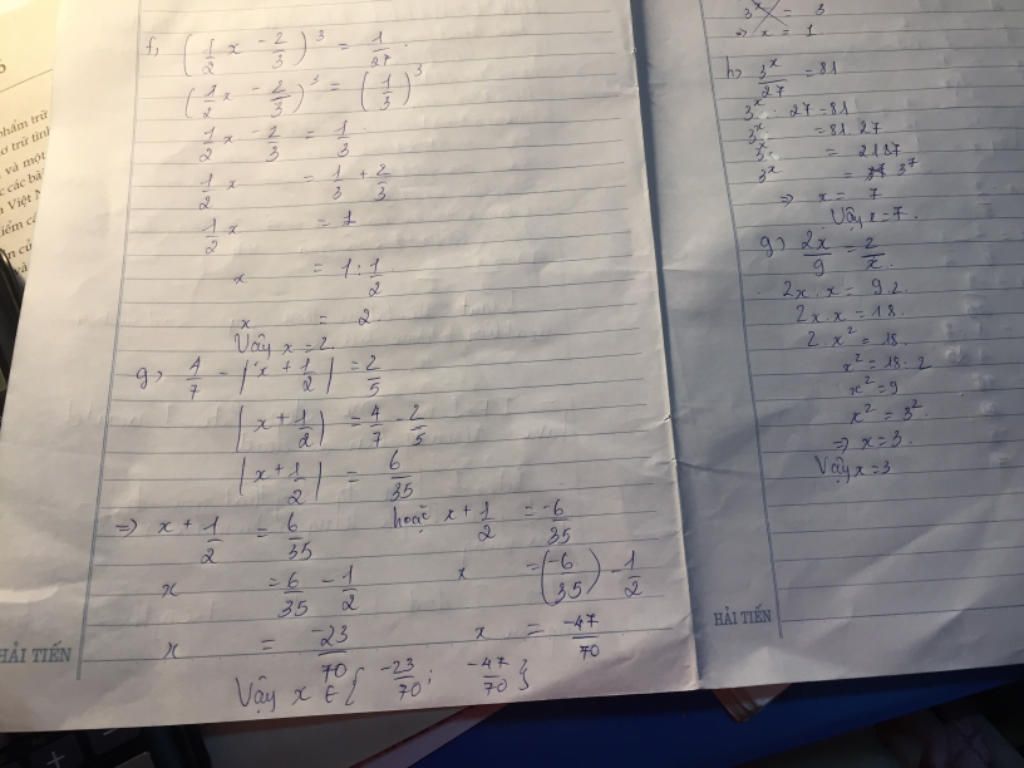 f, (1/2 x - 2/3)³ = 1/27
(1/2 x - 2/3)³ = (1/3)³
1/2 x - 2/3 = 1/3
1/2 x = 1/3 + 2/3
1/2 x = 1
x = 1 : 1/2
x = 2
Vậy x = 2
g, 4/7 - |x + 1/2| = 2/5
|x + 1/2| = 4/7 - 2/5
|x + 1/2| = 6/35
=> x + 1/2 = 6/35 hoặc x + 1/2 = -6/35
x = 6/35 - 1/2 x = (-6/35) - 1/2
x = -23/70 x = -47/70
Vậy x ∈ { -23/70 ; -47/70 }
HẢI TIẾN
3ˣ = 3
=> x = 1
h) 3ˣ/27 = 81
3ˣ : 27 = 81
3ˣ = 81.27
3ˣ = 2187
3ˣ = 3⁷
=> x = 7
Vậy x = 7.
g) 2x/9 = 2/x.
2x.x = 9.2
2x.x = 18.
2.x² = 18.
x² = 18:2
x² = 9
x² = 3².
=> x = 3.
Vậy x = 3
HẢI TIẾN
phẩm trữ
ơ trữ tình
và một
các bài
Việt N